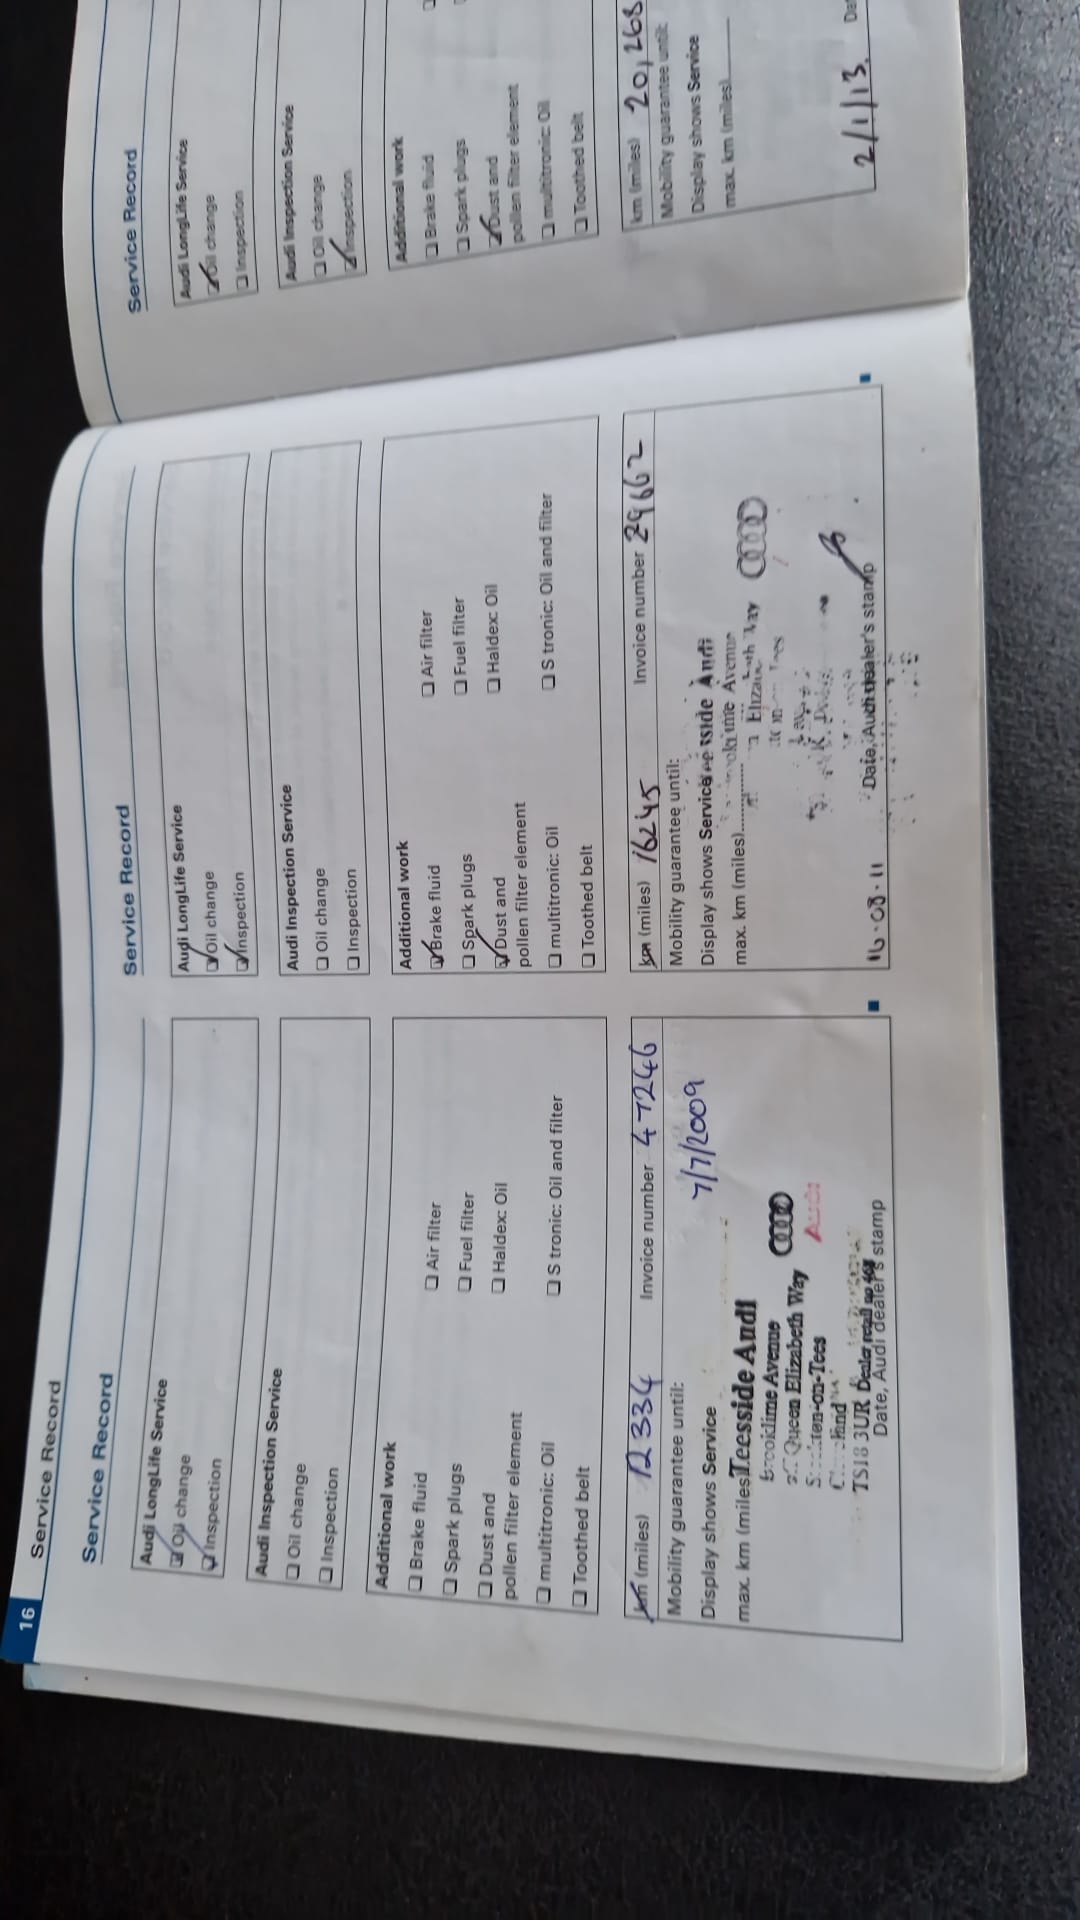 16 Service Record
Service Record
Audi LongLife Service
Oil change
Inspection
Audi Inspection Service
Oil change
Inspection
Additional work
Brake fluid
Air filter
Spark plugs
Fuel filter
Dust and
pollen filter element
Haldex: Oil
multitronic: Oil
S tronic: Oil and filter
Toothed belt
km (miles) 12334
Invoice number 47246
Mobility guarantee until:
7/7/2009
Display shows Service
max. km (miles)
Teesside Audi
Brooklime Avenue
Queen Elizabeth Way
Audi
TS18 3UR Dealer retail
Date, Audi dealer's stamp
Service Record
Audi LongLife Service
Oil change
Inspection
Audi Inspection Service
Oil change
Inspection
Additional work
Brake fluid
Air filter
Spark plugs
Fuel filter
Dust and
pollen filter element
Haldex: Oil
multitronic: Oil
S tronic: Oil and filter
Toothed belt
km (miles) 16245
Invoice number 29662
Mobility guarantee until:
Display shows Service
Audi
max. km (miles)
Avenue
16.08.11
Date, Audi dealer's stamp
Service Record
Audi LongLife Service
Oil change
Inspection
Audi Inspection Service
Oil change
Inspection
Additional work
Brake fluid
Spark plugs
Dust and
pollen filter element
multitronic: Oil
Toothed belt
km (miles) 20,268
Mobility guarantee until:
Display shows Service
max. km (miles)
2/1/13.